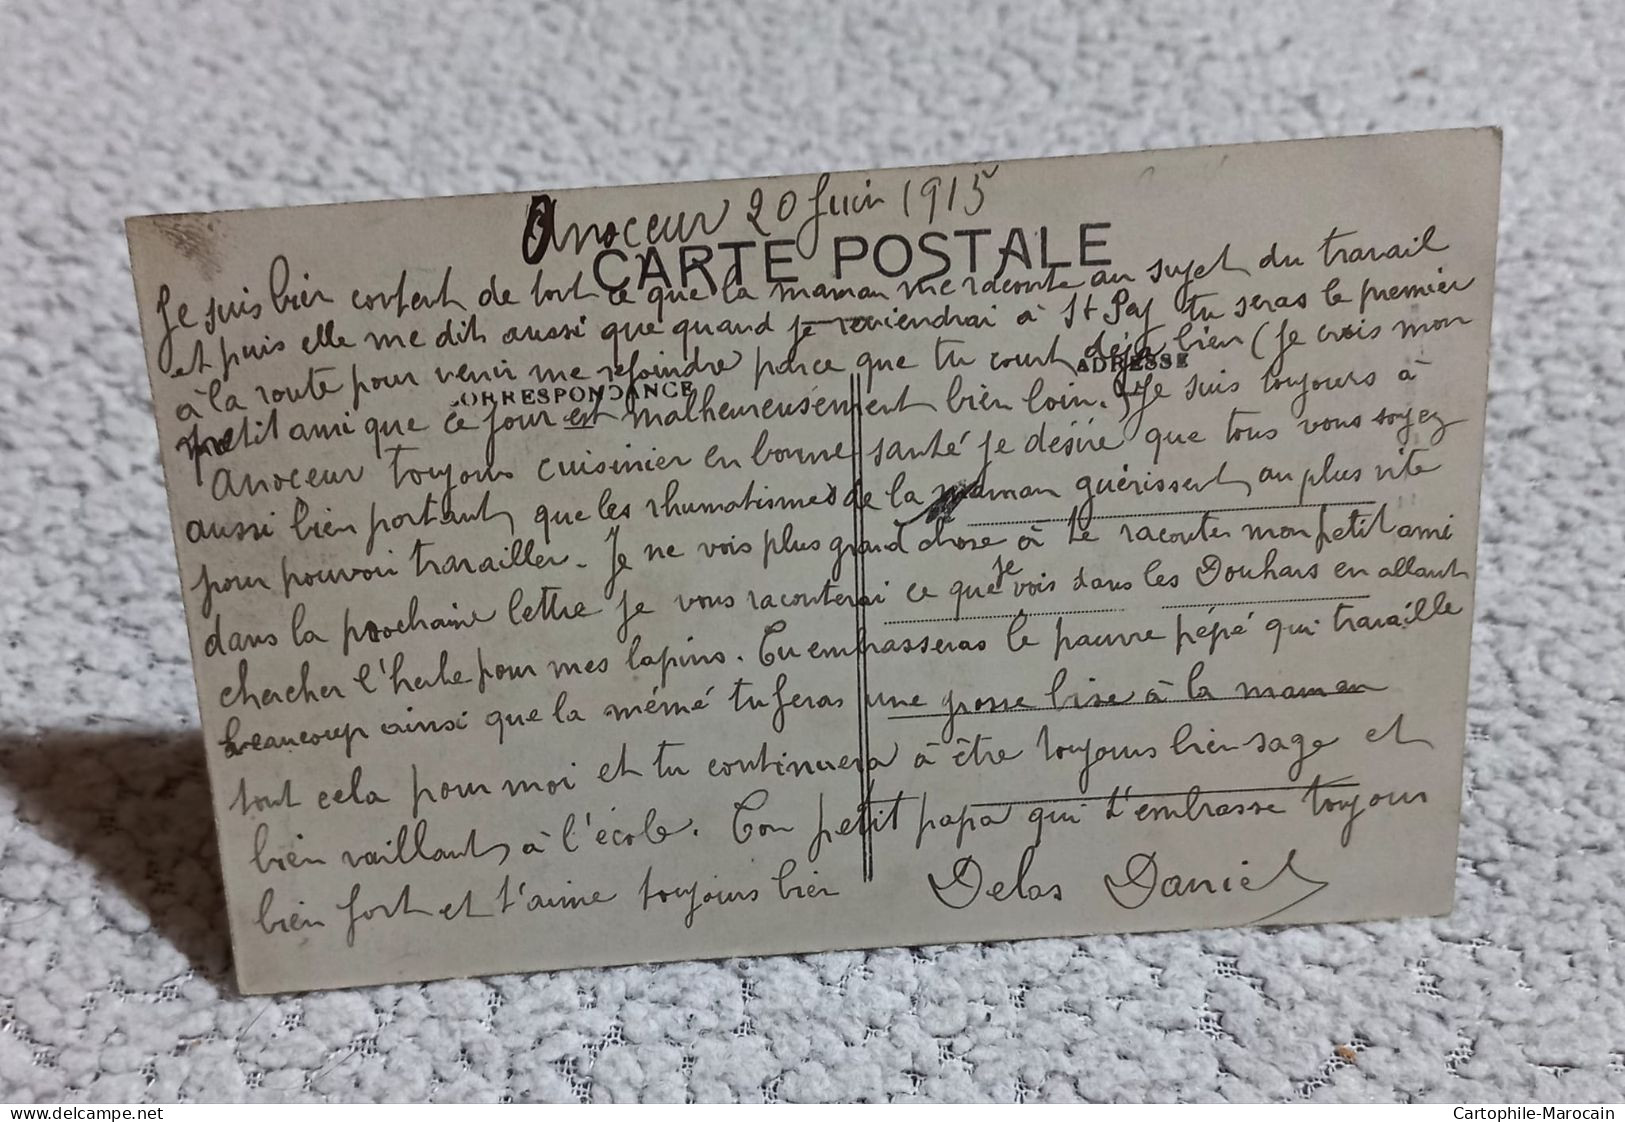 Anoceur 20 Juin 1915
CARTE POSTALE
Je suis bien contant de tout ce que la maman me raconte au sujet du travail
et puis elle me dit aussi que quand je reviendrai à St Pey tu seras le premier
à la route pour venir me rejoindre parce que tu court déjà bien (je crois mon
CORRESPONDANCE
ADRESSE
petit ami que ce jour est malheureusement bien loin.) Je suis toujours à
Anoceur toujours cuisinier en bonne santé je désire que tous vous soyez
aussi bien portant, que les rhumatismes de la maman guérissent au plus vite
pour pouvoir travailler. Je ne vois plus grand chose à te raconter mon petit ami
dans la prochaine lettre je vous raconterai ce que je vois dans les Douhars en allant
chercher l'herbe pour mes lapins. Tu embrasseras le pauvre pépé qui travaille
beaucoup ainsi que la mémé tu feras une grosse bise à la maman
tout cela pour moi et tu continuera à être toujours bien sage et
bien vaillant, à l'école. Ton petit papa qui t'embrasse toujour
bien fort et t'aime toujours bien Delas Daniel
delcampe.net
Cartophile-Marocain